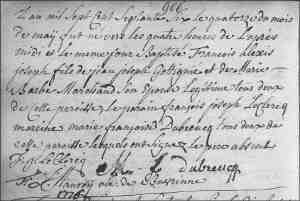 L'an mil Sept Cent Septante Six le quatorze du mois
de may fut né vers les quatre heures de L'après
midi et le meme jour Baptisé Francois alexis
joseph fils de jean joseph Gottignie et de Marie
Barbe Marchand son Epouse Legitime tous deux
de cette paroisse le parain françois joseph Leclercq
maraine marie françoise Dubreucq tous deux de
cette paroisse lesquels ont signé le pere absent
F. g. Le Clercq Dubreucq
de
1776